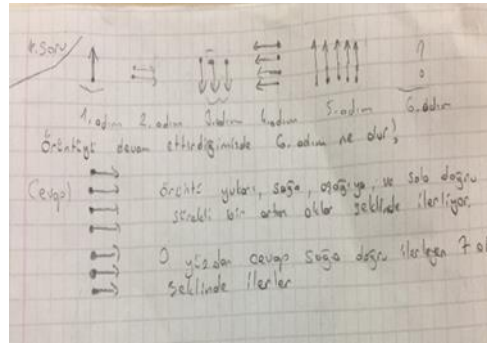 4. Soru
1. adım 2. adım 3. adım 4. adım 5. adım 6. adım
Örüntüyü devam ettirdiğimizde 6. adım ne olur?
Cevap) örüntü yukarı, sağa, aşağıya, ve sola doğru
sürekli bir artan oklar şeklinde ilerliyor.
O yüzden cevap sağa doğru ilerleyen 7 ok
şeklinde ilerler